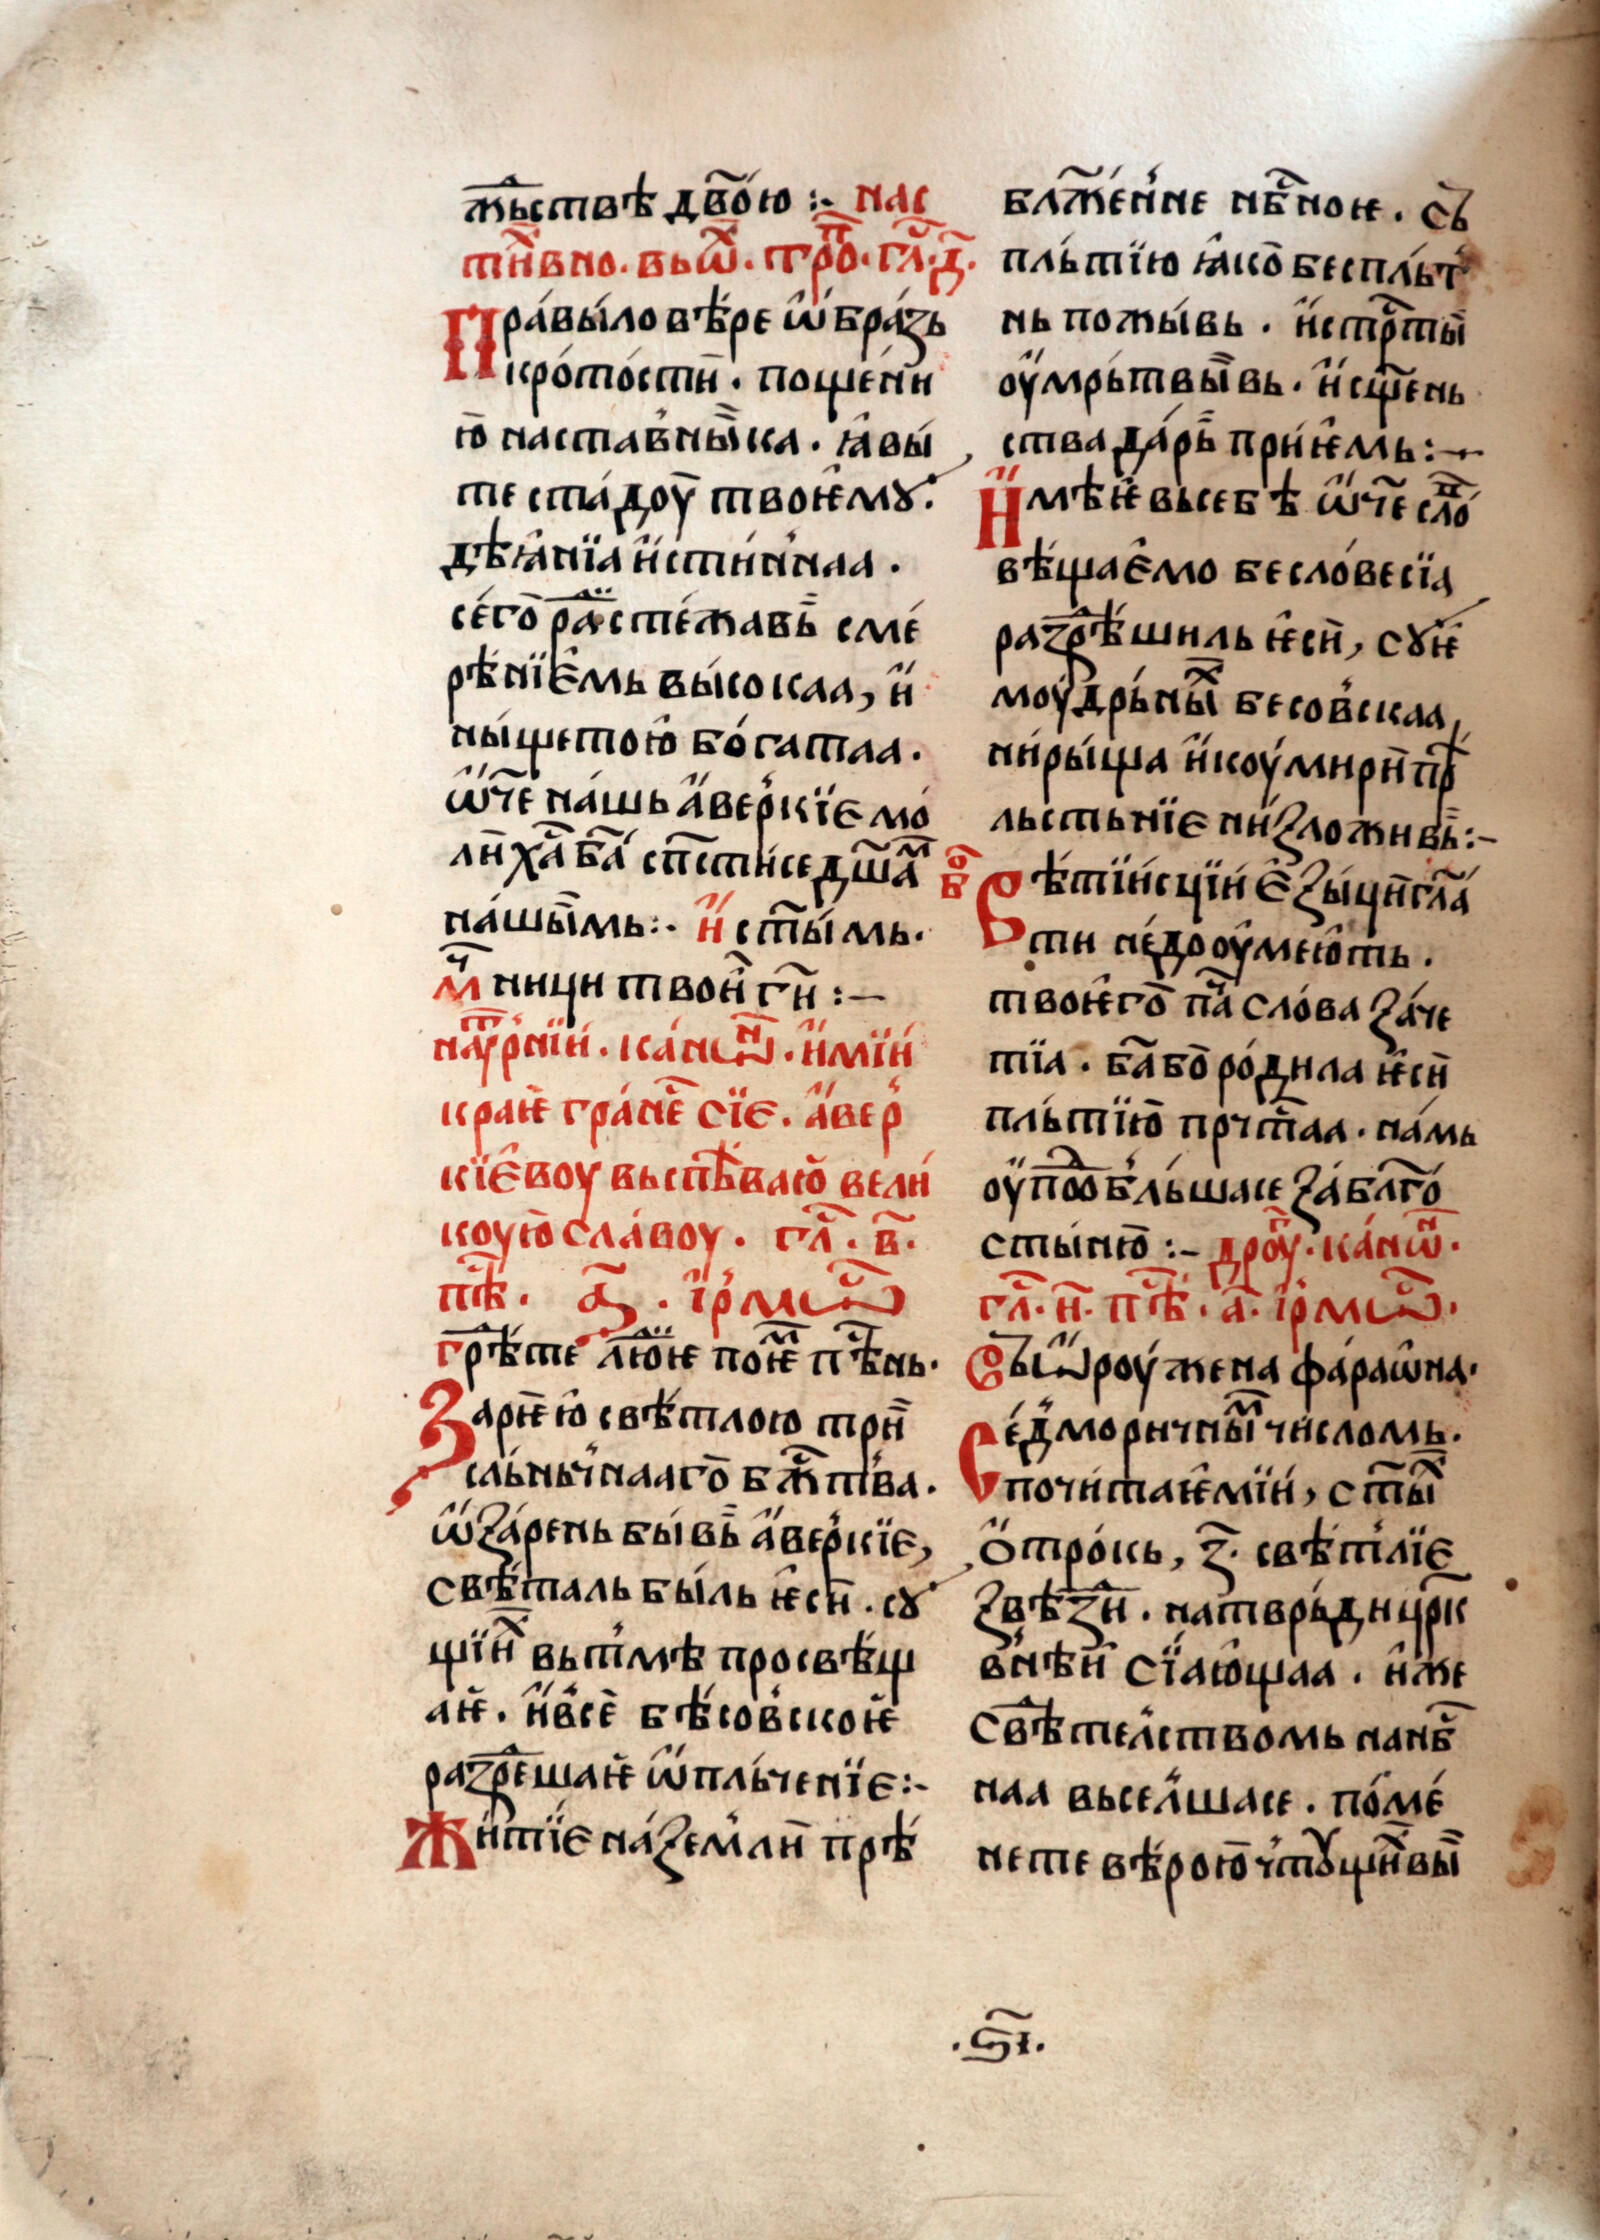 жⷭ҇ьствѣ двою :- нас
тⷯи҇вно. вьѿ. трⷪ҇п. гл҃. д҃.
Правыло вѣре ѡбразь
кротости. поще́нїи
ю наставныка. ꙗвы
те стадоу твоѥмꙋ.
дѣꙗнїа истиннаа.
сего рад̾истежавь сме
рѣнїемь высокаа, и
ныщетою богатаа.
ѿч҃е нашь аверкїе мо
ли х҃а б҃а спⷭ҇тисе дш҃аⷨ
нашымь:· и ст҃ымь.
мⷱ҇ници твои гⷭ҇и :—
наѹⷮрнїи. канѡⷩ. имїи
краѥ гранеⷭ сїе. авер
кїевоу вьспѣваю вели
коую славоу. гл҃. в҃.
пⷭ҇ѣ. а҃. їрмѡⷭ
грѣдⷣте людїѥ поиⷨ пѣⷭнь.
Зариѥю свѣтлою три
сльньчнааго бжⷭ҇тва.
ѡзарень бывь аверкїе,
свѣталь быль ѥси. сꙋ
щїиⷯ вьтмѣ просвѣщ
аѥ. и все бѣсовскоѥ
разрⷣешаѥ ѡпльченїе:-
Житїе на земли прѣ
блаженне нбⷭ҇ноѥ. сь
пльтїю ꙗко беспльт
нь пожывь. и стрⷭ҇ты
оумрьтвывь. и сщ҃ень
ства дарь приѥмь:—
Имѣѥ вьсебѣ ѡч҃е слоⷡ҇
вѣщаемо бесловесїа
разрⷣѣшиль ѥси, сꙋѥ
моудрьныⷯ бесовскаа,
нирыща и коумири прⷣ
льстьнїе низложивь:-
бⷪ҇ Вѣтїисции езыци гл҃а
ти недооумеють.
твоѥго пⷭ҇а слова заче
тїа. б҃а бо родила ѥси
пльтїю прчⷭ҇таа. намь
оуподⷣо бльшасе за бл҃го
стыню :- дроуⷢ. канѡⷩ.
гл҃. и҃. пⷭ҇ѣ. а҃. їрмѡⷭ.
Сь ѡроужена фараѡна.
Седморичныⷨ числомь.
почитаѥмїи, ст҃ыⷯ
Отрокь, з҃. свѣтлїе
звѣзⷣи. на тврьди црк
внѣи сїающаа. иже
свⷣѣтелствомь нанбⷭ
наа вьселшасе. поме
нете вѣрою чтꙋщиⷯ вы
.ѕ҃ı.